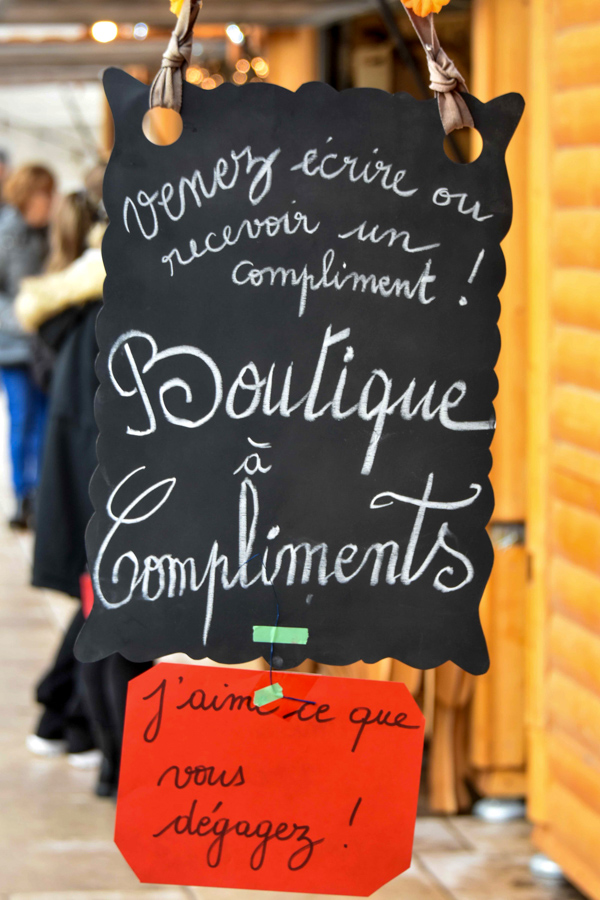 venez écrire ou
recevoir un
compliment !
Boutique
à
Compliments
J'aime ce que
vous
dégagez !